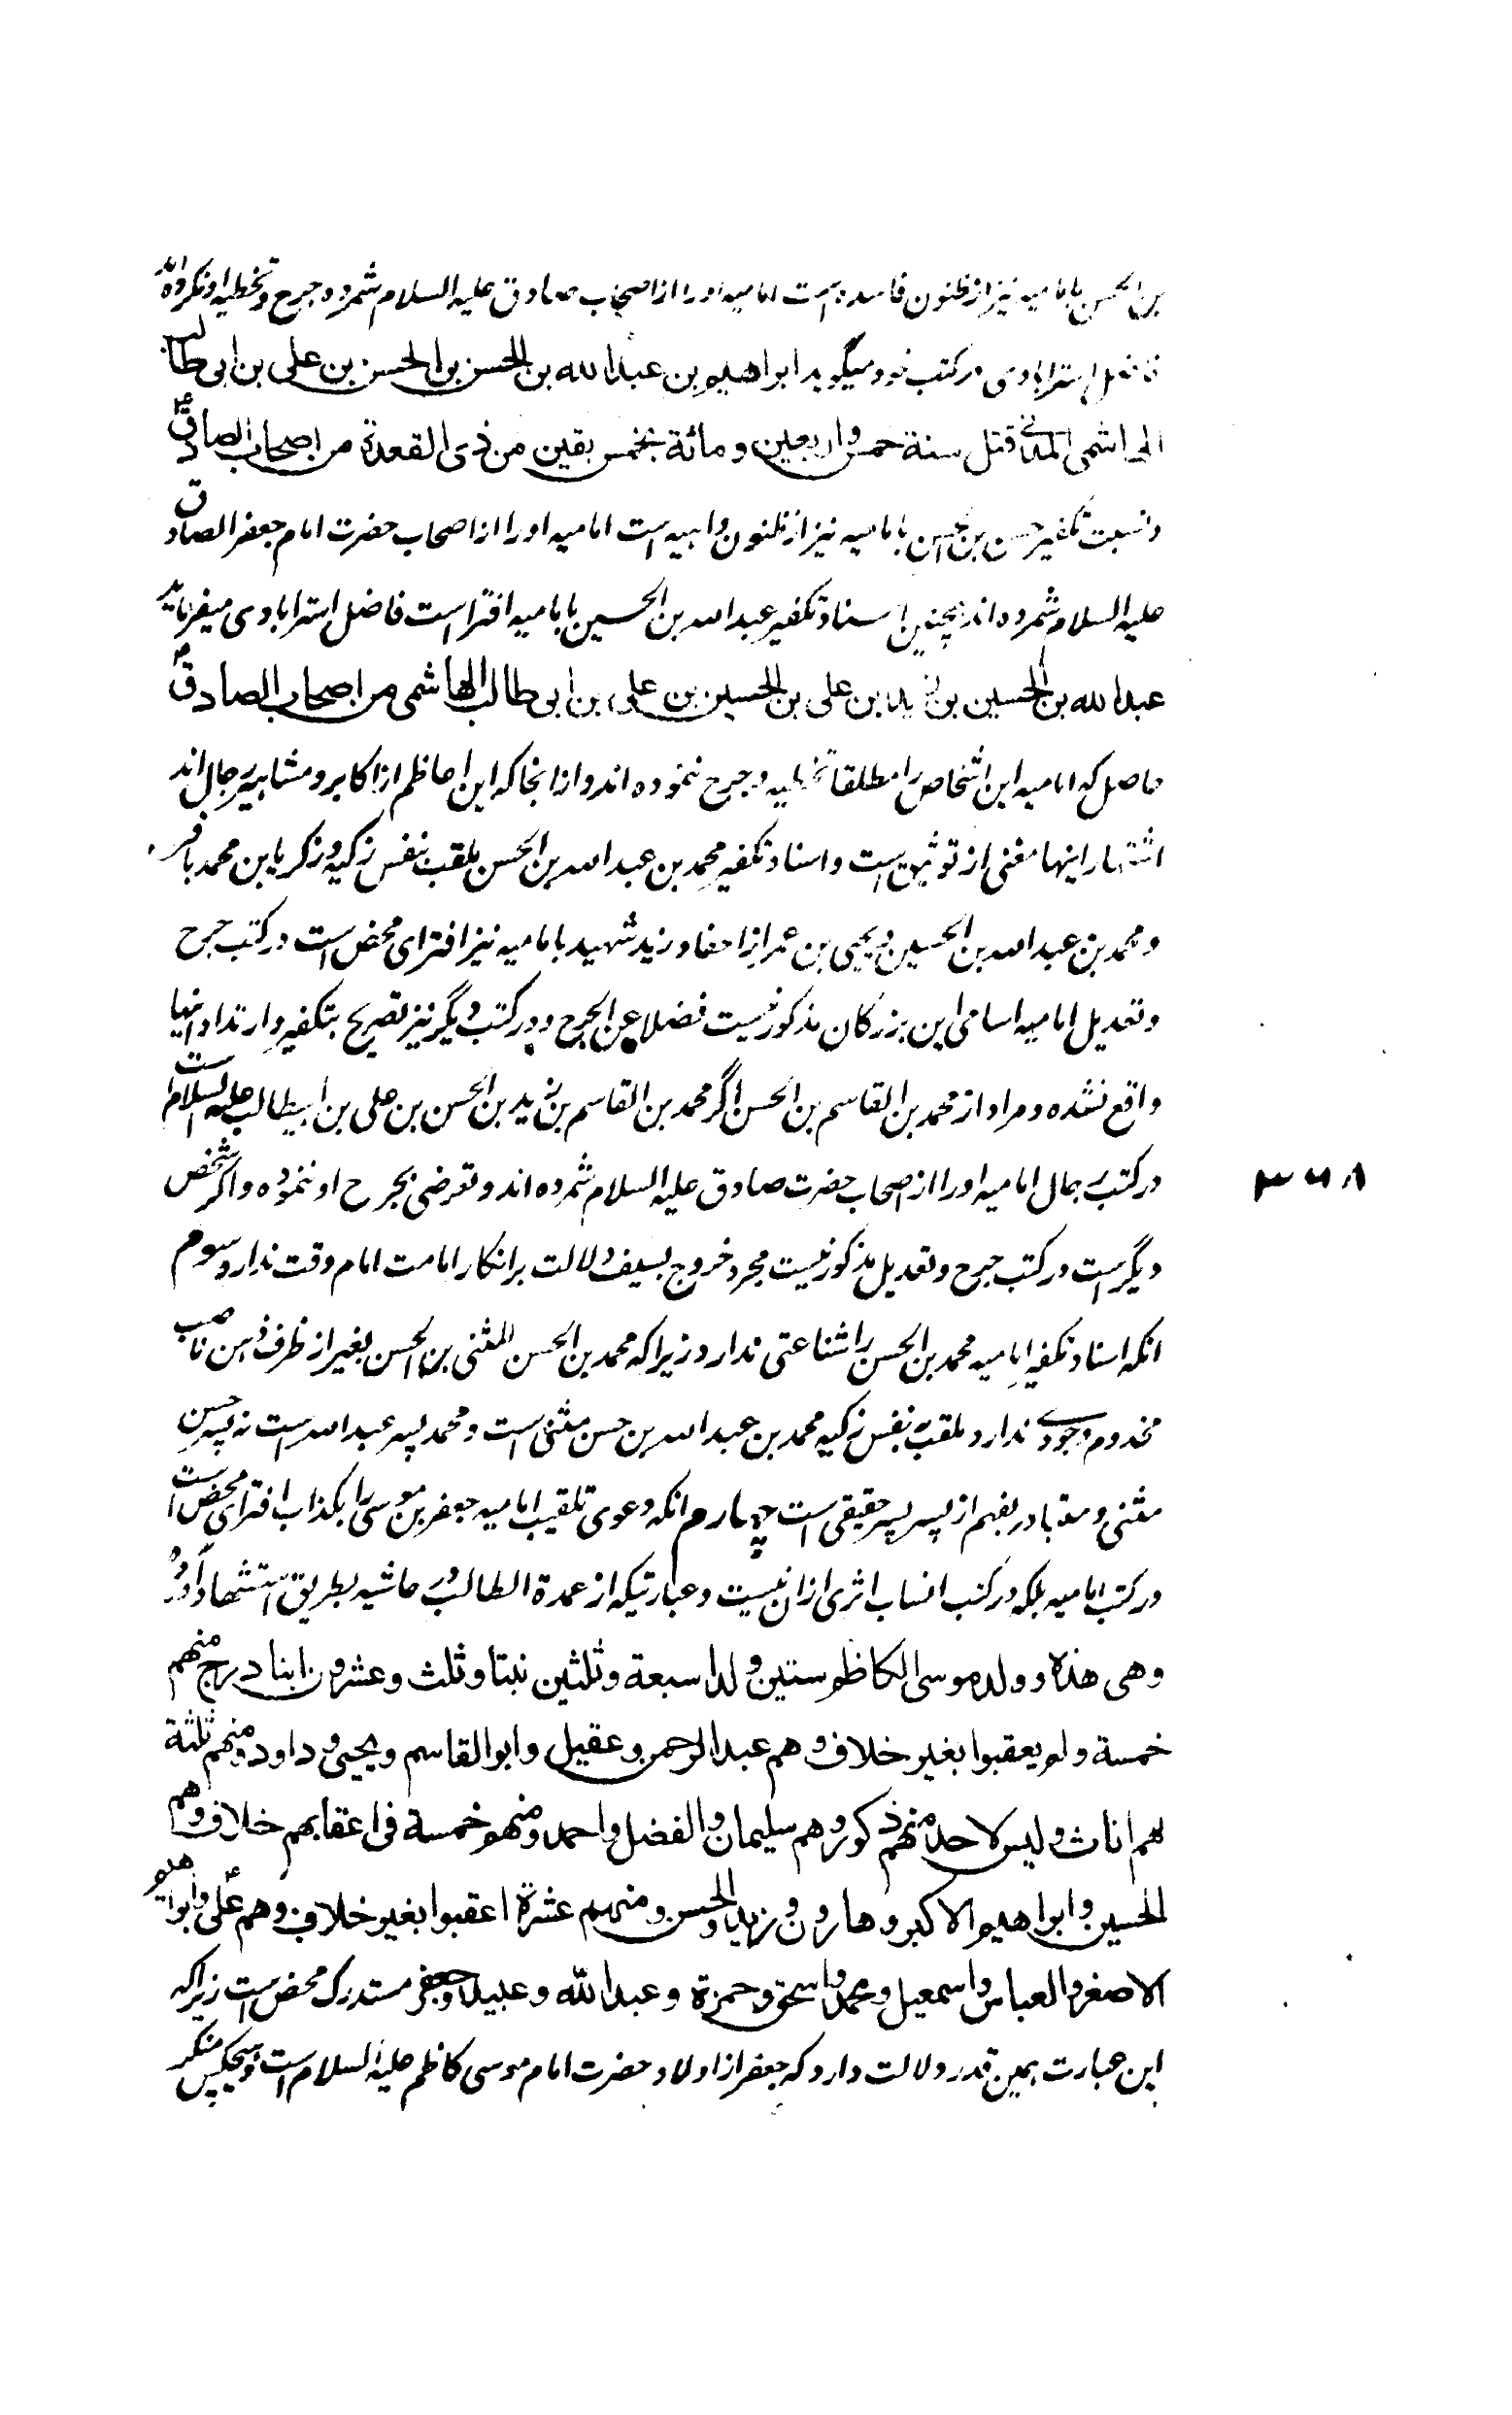 بن الحسن بامامیه نیز از ظنون فاسده است امامیه اورا از اصحاب صادق علیه السلام شمرده جرح و تخطیه او نکرده اند
فاضل استرابادی در کتب خود میگوید ابراهیم بن عبدالله بن الحسن بن الحسن بن علی بن ابی طالب
الهاشمی المدنی قتل سنة خمس و اربعین و مائة بخمس بقین من ذی القعدة من اصحاب الصادقؑ
و نسبت تکفیر حسن بن الحسن بامامیه نیز از ظنون واهیه است امامیه اورا از اصحاب حضرت امام جعفر الصادق
علیه السلام شمرده اند همچنین اسناد تکفیر عبدالله بن الحسین بامامیه افترا است فاضل استرابادی میفرماید
عبدالله بن الحسین بن زید بن علی بن الحسین بن علی بن ابی طالب الهاشمی من اصحاب الصادقؑ
حاصل که امامیه این اشخاص را مطلقا تخطیه و جرح ننموده اند و از انجا که این اعاظم از اکابر و مشاهیر رجال اند
اشتهار اینها مغنی از توثیق است و اسناد تکفیر محمد بن عبدالله بن الحسن ملقب بنفس زکیه و زکریا بن محمد باقر
و محمد بن عبدالله بن الحسین و یحیی بن عمر از احفاد زید شهید بامامیه نیز افترای محض است در کتب جرح
و تعدیل امامیه اسامی این بزرگان مذکور نیست فضلا عن الجرح و در کتب دیگر نیز تصریح بتکفیر و ارتداد اینها
واقع نشده و مراد از محمد بن القاسم بن الحسن اگر محمد بن القاسم بن زید بن الحسن بن علی بن ابیطالب علیه السلام است
در کتب رجال امامیه اورا از اصحاب حضرت صادق علیه السلام شمرده اند و تعرضی بجرح او ننموده و اگر شخص
دیگر است در کتب جرح و تعدیل مذکور نیست مجرد خروج بسیف دلالت بر انکار امامت امام وقت ندارد سوم
انکه اسناد تکفیر امامیه محمد بن الحسن را شناعتی ندارد زیرا که محمد بن الحسن المثنی بن الحسن بغیر از ظرف ذهن ناصب
مخدوم وجودی ندارد ملقب به نفس زکیه محمد بن عبدالله بن حسن مثنی است و محمد پسر عبدالله است نه پسر حسن
مثنی و متبادر بفهم از پسر پسر حقیقی است چهارم انکه دعوی تلقیب امامیه جعفر بن موسی را بکذاب افترای محض است
در کتب امامیه بلکه در کتب انساب اثری ازان نیست و عبارتیکه از عمدة الطالب در حاشیه بطریق استشهاد آورده
وهی هذه و ولد موسی الکاظم ستین ولدا سبعة وثلثین بنتا وثلث وعشرون ابنا درج منهم
خمسة ولم یعقبوا بغیر خلاف وهم عبدالرحمن وعقیل وابو القاسم ویحیی و داود ومنهم ثلثة
لهم اناث ولیس لاحد منهم ذکور وهم سلیمان والفضل واحمد ومنهم خمسة فی اعقابهم خلاف وهم
الحسین وابراهیم الاکبر وهارون وزید والحسن ومنهم عشرة اعقبوا بغیر خلاف وهم علی وابراهیم
الاصغر والعباس واسمعیل ومحمد واسحق وحمزة وعبدالله وعبیدالله وجعفر مستدرک محض است زیراکه
این عبارت همین قدر دلالت دارد که جعفر از اولاد حضرت امام موسی کاظم علیه السلام است و هیچکس منکر
۳۶۸